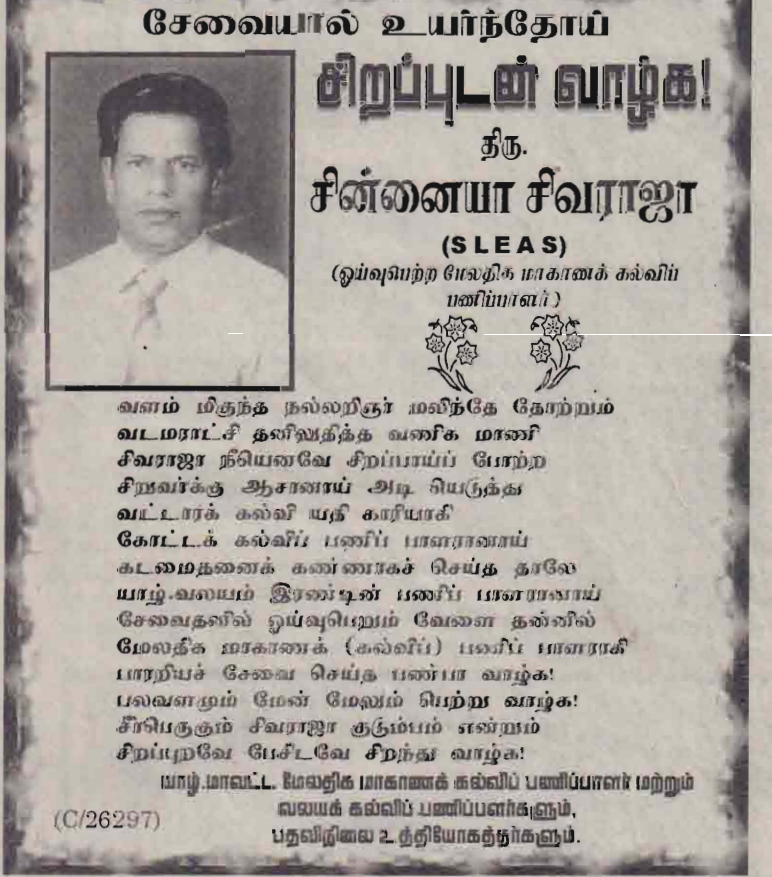 சேவையால் உயர்ந்தோய்
சிறப்புடன் வாழ்க!
திரு.
சின்னையா சிவராஜா
(SLEAS)
(ஓய்வுபெற்ற மேலதிக மாகாணக் கல்விப்
பணிப்பாளர்)
வளம் மிகுந்த நல்லறிஞர் மலிந்தே தோற்றும்
வடமராட்சி தனிலுதித்த வணிக மாணி
சிவராஜா நீயெனவே சிறப்பாய்ப் போற்ற
சிறுவர்க்கு ஆசானாய் அடி யெடுத்து
வட்டாரக் கல்வி யதி காரியாகி
கோட்டக் கல்விப் பணிப் பாளரானாய்
கடமைதனைக் கண்ணாகச் செய்த தாலே
யாழ்.வலயம் இரண்டின் பணிப் பாளரானாய்
சேவைதனில் ஓய்வுபெறும் வேளை தன்னில்
மேலதிக மாகாணக் (கல்விப்) பணிப் பாளராகி
பாரறியச் சேவை செய்த பண்பா வாழ்க!
பலவளமும் மேன் மேலும் பெற்று வாழ்க!
சீர்பெருகும் சிவராஜா குடும்பம் என்றும்
சிறப்புறவே பேசிடவே சிறந்து வாழ்க!
யாழ்.மாவட்ட மேலதிக மாகாணக் கல்விப் பணிப்பாளர் மற்றும்
வலயக் கல்விப் பணிப்பளர்களும்,
பதவிநிலை உத்தியோகத்தர்களும்.
(C/26297)